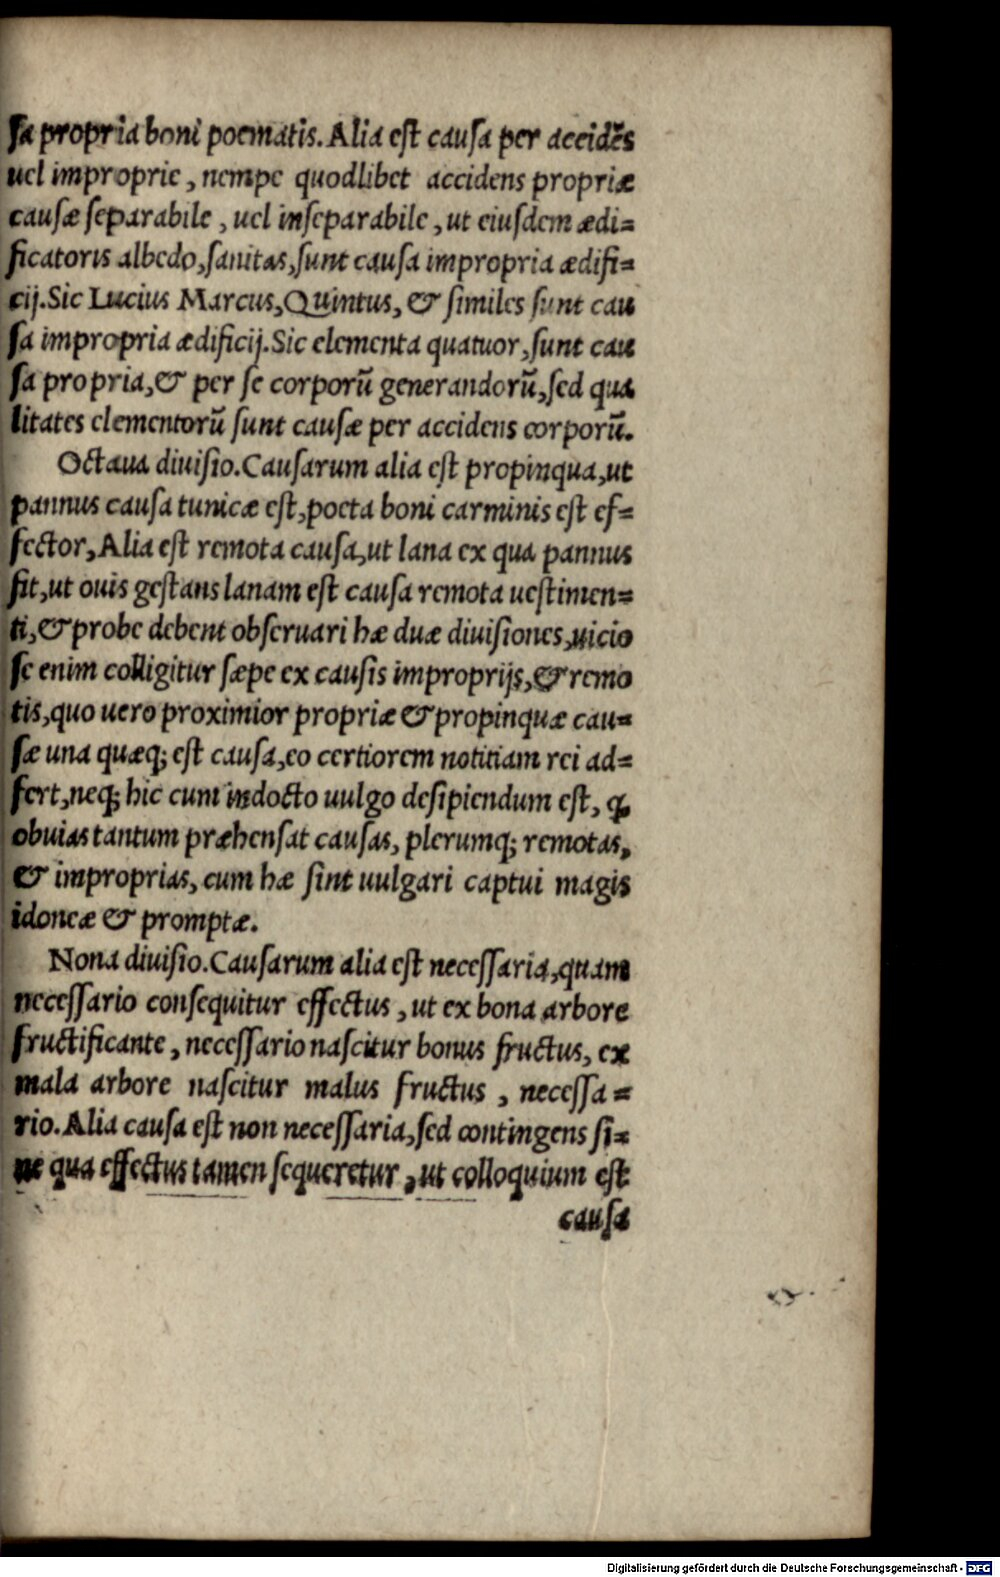 sa propria boni poematis. Alia est causa per accidẽs
uel improprie, nempe quodlibet accidens propriæ
causæ separabile, uel inseparabile, ut eiusdem ædi=
ficatoris albedo, sanitas, sunt causa impropria ædifi=
cij. Sic Lucius Marcus, Quintus, & similes sunt cau
sa impropria ædificij. Sic elementa quatuor, sunt cau
sa propria, & per se corporũ generandorũ, sed qua
litates elementorũ sunt causæ per accidens corporũ.
Octaua diuisio. Causarum alia est propinqua, ut
pannus causa tunicæ est, poeta boni carminis est ef=
fector, Alia est remota causa, ut lana ex qua pannus
fit, ut ouis gestans lanam est causa remota uestimen=
ti, & probe debent obseruari hæ duæ diuisiones, uicio
se enim colligitur sæpe ex causis improprijs, & remo
tis, quo uero proximior propriæ & propinquæ cau=
sæ una quæq; est causa, eo certiorem notitiam rei ad=
fert, neq; hic cum indocto uulgo desipiendum est, ꝙ
obuias tantum præhensat causas, plerumq; remotas,
& improprias, cum hæ sint uulgari captui magis
idoneæ & promptæ.
Nona diuisio. Causarum alia est necessaria, quam
necessario consequitur effectus, ut ex bona arbore
fructificante, necessario nascitur bonus fructus, ex
mala arbore nascitur malus fructus, necessa=
rio. Alia causa est non necessaria, sed contingens si=
ne qua effectus tamen sequeretur, ut colloquium est
causa
Digitalisierung gefördert durch die Deutsche Forschungsgemeinschaft - DFG